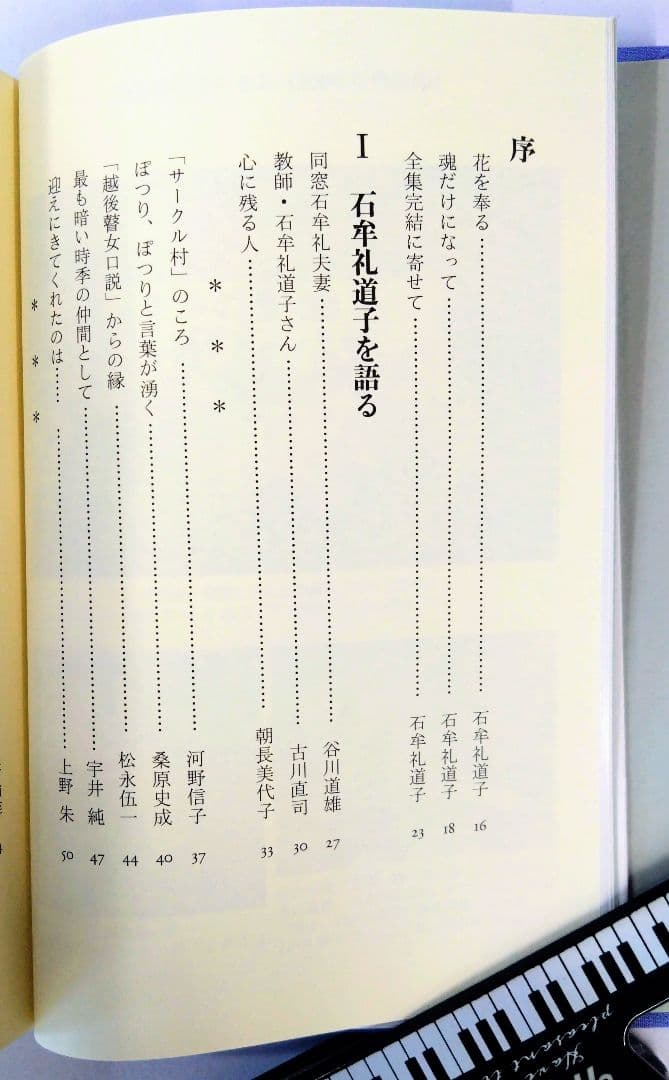 序
花を奉る……………………………石牟礼道子 16
魂だけになって……………………………石牟礼道子 18
全集完結に寄せて……………………………石牟礼道子 23
I 石牟礼道子を語る
同窓石牟礼夫妻……………………………谷川道雄 27
教師・石牟礼道子さん……………………………古川直司 30
心に残る人……………………………朝長美代子 33
＊ ＊ ＊
「サークル村」のころ……………………………河野信子 37
ぽつり、ぽつりと言葉が湧く……………………………桑原史成 40
「越後瞽女口説」からの縁……………………………松永伍一 44
最も暗い時季の仲間として……………………………宇井 純 47
迎えにきてくれたのは……　……………………………上野 朱 50
＊ ＊ ＊